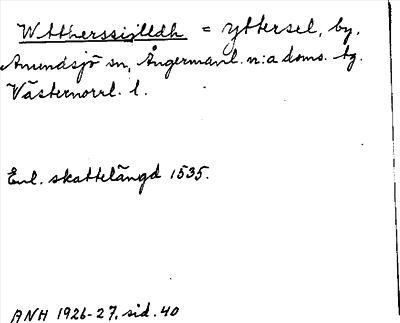 Wttherssiglledh = yttersel, by.
Anundsjö sn, Ångermanl. n:a doms. tg.
Västernorrl. l.
Enl. skattelängd 1535.
ANH 1926-27, sid. 40